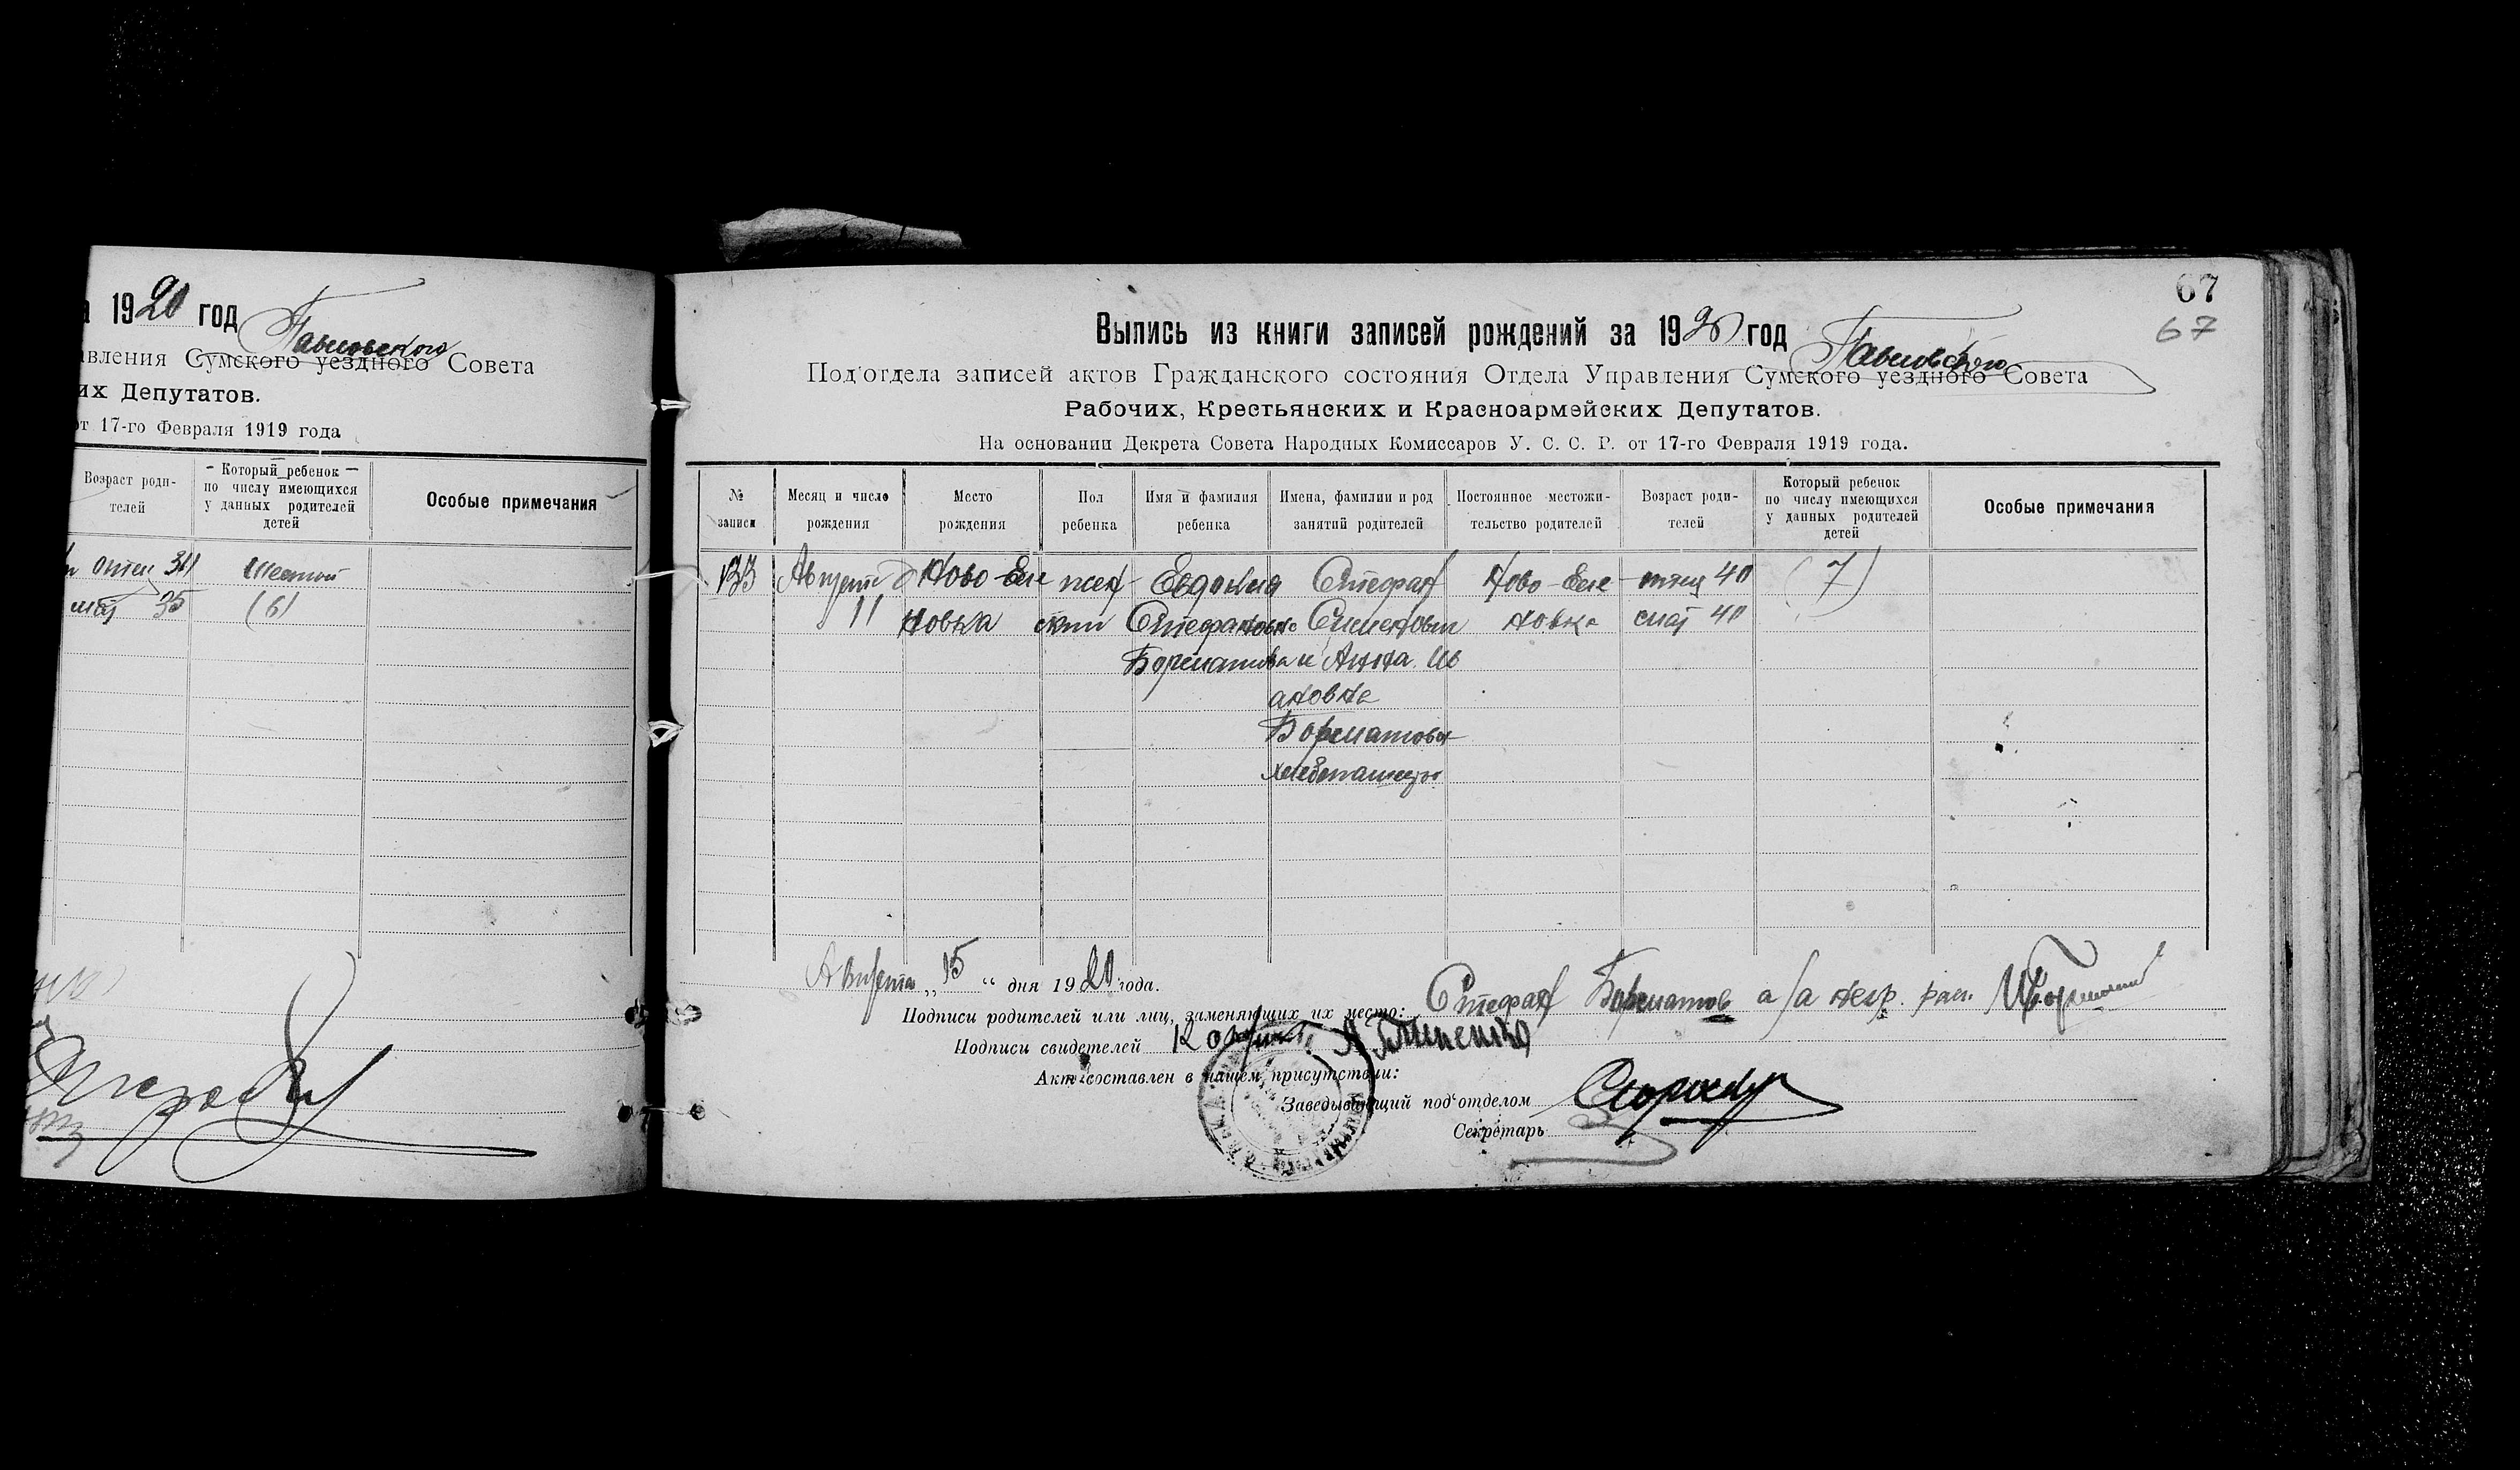 1920 год
Павловского
Сумского уездного Совета
их Депутатов.
от 17-го Февраля 1919 года
Возраст роди-
телей
Который ребенок
по числу имеющихся
у данных родителей
детей
Особые примечания
отец
Шестой
35
(6)
67
67
Выпись из книги записей рождений за 1920 год
Павловского
Под'отдела записей актов Гражданского состояния Отдела Управления Сумского уездного Совета
Рабочих, Крестьянских и Красноармейских Депутатов.
На основании Декрета Совета Народных Комиссаров У. С. С. Р. от 17-го Февраля 1919 года.
№
записи
Месяц и число
рождения
Место
рождения
Пол
ребенка
Имя и фамилия
ребенка
Имена, фамилии и род
занятий родителей
Постоянное местожи-
тельство родителей
Возраст роди-
телей
Который ребенок
по числу имеющихся
у данных родителей
детей
Особые примечания
133
Август
11
Ново-Еле
новка
жен
ский
Евдокия
Стефановна
Борматова
Стефан
Семенович
и Анна Ив
ановна
Борматовы
хлебопашцы
Ново-Еле
новка
отец 40
мат 40
(7)
Августа „15“ дня 1920 года.
Подписи родителей или лиц, заменяющих их место: Стефан Борматов а за негр. рас.
Подписи свидетелей
Акт составлен в нашем присутствии:
Заведывающий под'отделом
Секретарь